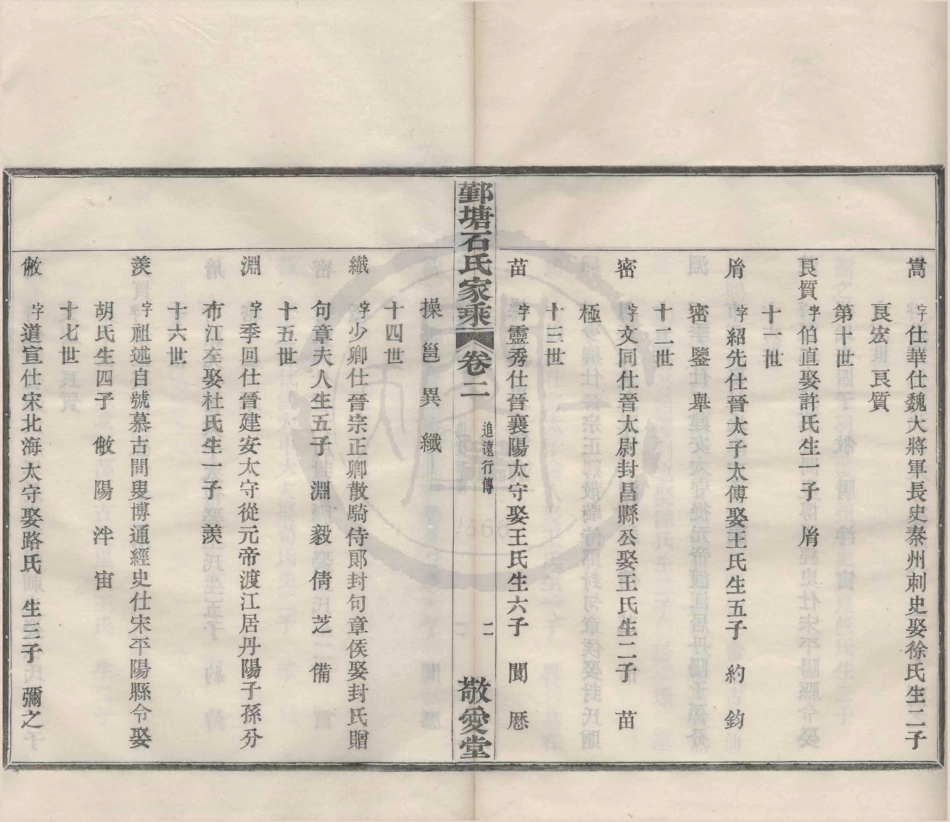 嵩 字仕華仕魏大將軍長史秦州刺史娶徐氏生二子
良宏 良質
第十世
良質 字伯直娶許氏生一子 㞕
十一世
㞕 字紹先仕晉太子太傅娶王氏生五子 約 鈞
密 鑒 舉
十二世
密 字文同仕晉太尉封昌縣公娶王氏生二子 苗
極
十三世
苗 字靈秀仕晉襄陽太守娶王氏生六子 閬 厯
鄞塘石氏家乘 卷二 追遠行傳 二 敬愛堂
操 邕 異 纎
十四世
纎 字少卿仕晉宗正卿散騎侍郎封句章侯娶封氏贈
句章夫人生五子 淵 毅 倩 芝 備
十五世
淵 字季回仕晉建安太守從元帝渡江居丹陽子孫分
布江左娶杜氏生一子 羨
十六世
羨 字祖述自號慕古間叟博通經史仕宋平陽縣令娶
胡氏生四子 敒 陽 泮 宙
十七世
敒 字道宣仕宋北海太守娶路氏 生三子 彌之